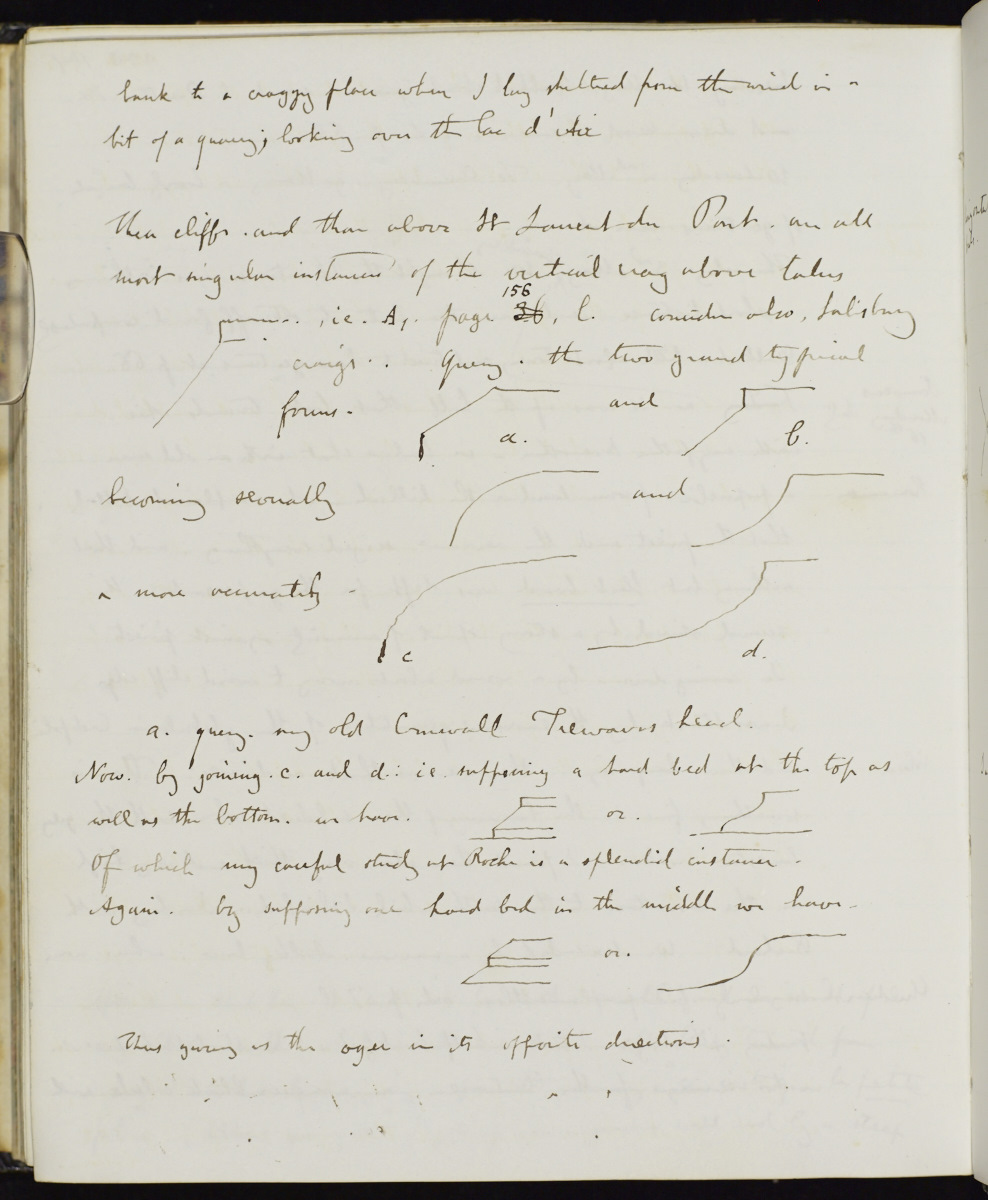 bank to a craggy place where I lay sheltered from the wind in a
bit of a quarry; looking over the Lac d'Aix
These cliffs. and those above St Laurent du Pont. are all
most singular instances of the vertical crag above talus
ie. A,. page 156 36, b. consider also, Salisbury
craigs. Query. the two grand typical
forms. and
a. b.
becoming severally and
or more accurately -
c d.
a. query. my old Cornwall Trewavas head.
Now. by joining. c. and d.: ie. supposing a hard bed at the top as
well as the bottom. we have. or.
Of which my careful study at Roche is a splendid instance.
Again. by supposing one hard bed in the middle we have -
or.
Thus giving us the ogee in its opposite directions.